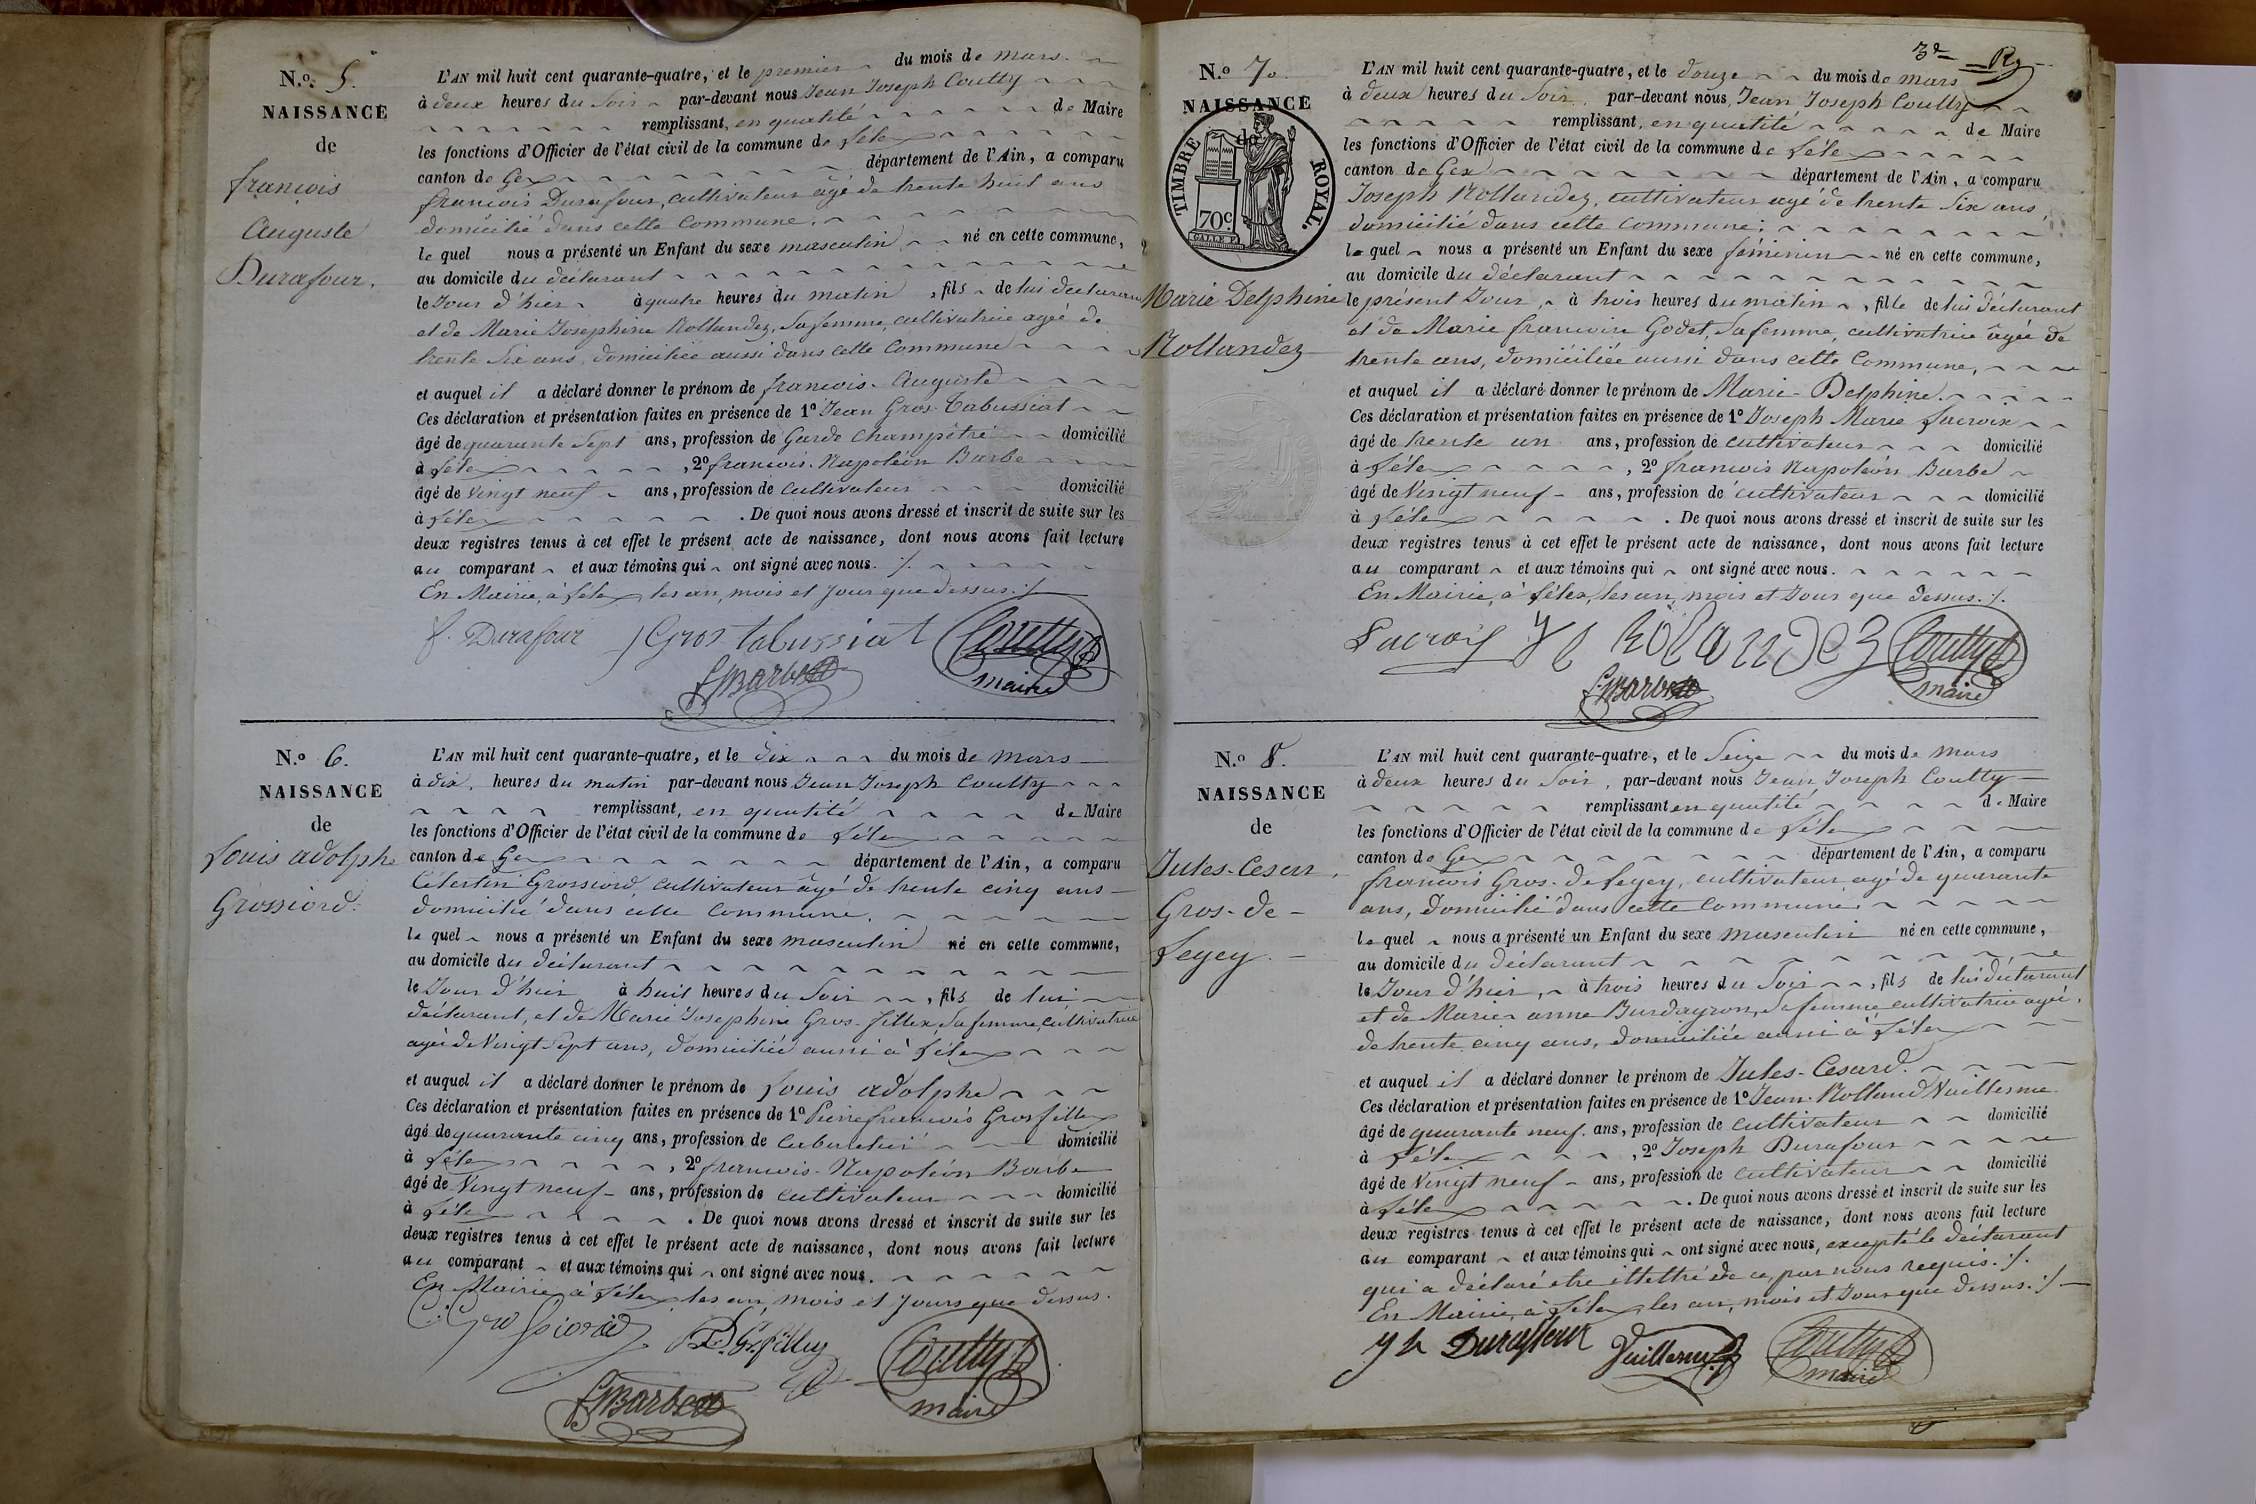 N.o 5.
NAISSANCE
de
françois
Auguste
Durafour.
L'AN mil huit cent quarante-quatre, et le premier du mois de mars.
à deux heures du soir par-devant nous Jean Joseph Coutty
remplissant, en qualité de Maire
les fonctions d'Officier de l'état civil de la commune de Lélex
canton de Gex département de l'Ain, a comparu
françois Durafour, cultivateur âgé de trente huit ans
domicilié dans cette Commune.
le quel nous a présenté un Enfant du sexe masculin né en cette commune,
au domicile du déclarant
le Jour d'hier à quatre heures du matin, fils de lui déclarant
et de Marie Josephine Rollandez, sa femme, cultivatrice agée de
trente six ans, domiciliée aussi dans cette Commune
et auquel il a déclaré donner le prénom de francois-Auguste
Ces déclaration et présentation faites en présence de 1º Jean Gros-Tabussiat
âgé de quarante sept ans, profession de Garde Champêtre domicilié
à Lélex, 2º francois-Napoléon Barbe
âgé de vingt neuf ans, profession de cultivateur domicilié
à Lélex. De quoi nous avons dressé et inscrit de suite sur les
deux registres tenus à cet effet le présent acte de naissance, dont nous avons fait lecture
au comparant et aux témoins qui ont signé avec nous. /.
En Mairie, à Lélex, les an, mois et jour que dessus. /.
f. Durafour J Gros tabussiat Coutty
maire
f N Barbe
N.o 6.
NAISSANCE
de
Louis adolphe
Grossiord.
L'AN mil huit cent quarante-quatre, et le dix du mois de mars
à dix. heures du matin par-devant nous Jean Joseph Coutty
remplissant, en qualité de Maire
les fonctions d'Officier de l'état civil de la commune de Lélex
canton de Gex département de l'Ain, a comparu
Célestin Grossiord, cultivateur âgé de trente cinq ans
domicilié dans cette Commune.
le quel nous a présenté un Enfant du sexe masculin né en cette commune,
au domicile du déclarant
le Jour d'hier à huit heures du soir, fils de lui
déclarant, et de Marie Josephine Gros-fillex, sa femme, cultivatrice
agée de vingt sept ans, domiciliée aussi à Lélex
et auquel il a déclaré donner le prénom de Louis adolphe
Ces déclaration et présentation faites en présence de 1º Pierre francois Grosfillex
âgé de quarante cinq ans, profession de Cabaretier domicilié
à Lélex, 2º francois-Napoléon Barbe
âgé de vingt neuf ans, profession de cultivateur domicilié
à Lélex. De quoi nous avons dressé et inscrit de suite sur les
deux registres tenus à cet effet le présent acte de naissance, dont nous avons fait lecture
au comparant et aux témoins qui ont signé avec nous.
En Mairie à Lélex les an, mois et jours que dessus.
C. Grossiord Coutty
maire
f N Barbe
3e R
N.o 7.
NAISSANCE
de
TIMBRE ROYAL.
70c.
Marie Delphine
Rollandez
L'AN mil huit cent quarante-quatre, et le douze du mois de mars
à deux heures du soir. par-devant nous, Jean Joseph Coutty
remplissant, en qualité de Maire
les fonctions d'Officier de l'état civil de la commune de Lélex
canton de Gex département de l'Ain, a comparu
Joseph Rollandez, cultivateur agé de trente six ans,
domicilié dans cette commune;
le quel nous a présenté un Enfant du sexe féminin né en cette commune,
au domicile du déclarant
le présent Jour, à trois heures du matin, fille de lui déclarant
et de Marie francoise Godet, sa femme, cultivatrice âgée de
trente ans, domiciliée aussi dans cette Commune,
et auquel il a déclaré donner le prénom de Marie-Delphine.
Ces déclaration et présentation faites en présence de 1º Joseph Marie Lacroix
âgé de trente un ans, profession de cultivateur domicilié
à Lélex, 2º francois Napoléon Barbe
âgé de vingt neuf ans, profession de cultivateur domicilié
à Lélex. De quoi nous avons dressé et inscrit de suite sur les
deux registres tenus à cet effet le présent acte de naissance, dont nous avons fait lecture
au comparant et aux témoins qui ont signé avec nous.
En Mairie, à Lélex, les an, mois et Jour que dessus. /.
Lacroix rolandez Coutty
maire
f N Barbe
N.o 8.
NAISSANCE
de
Jules-Cesar,
Gros-de-
Legey.
L'AN mil huit cent quarante-quatre, et le seize du mois de mars
à deux heures du soir, par-devant nous Jean Joseph Coutty
remplissant en qualité de Maire
les fonctions d'Officier de l'état civil de la commune de Lélex
canton de Gex département de l'Ain, a comparu
francois Gros-de Legey, cultivateur agé de quarante
ans, domicilié dans cette Commune.
le quel nous a présenté un Enfant du sexe masculin né en cette commune,
au domicile du déclarant
le Jour d'hier, à trois heures du soir, fils de lui déclarant
et de Marie anne Burdayron, sa femme cultivatrice agée
de trente cinq ans, domiciliée aussi à Lélex
et auquel il a déclaré donner le prénom de Jules-Cesard.
Ces déclaration et présentation faites en présence de 1º Jean-Rolland Vuillerme
âgé de quarante neuf. ans, profession de cultivateur domicilié
à Lélex, 2º Joseph Durafour
âgé de vingt neuf ans, profession de cultivateur domicilié
à Lélex. De quoi nous avons dressé et inscrit de suite sur les
deux registres tenus à cet effet le présent acte de naissance, dont nous avons fait lecture
au comparant et aux témoins qui ont signé avec nous, excepté le déclarant
qui a déclaré etre illettré de ce, par nous requis. /.
En Mairie, à Lélex, les an, mois et Jour que dessus. /.
Duraffour Vuillerme Coutty
maire